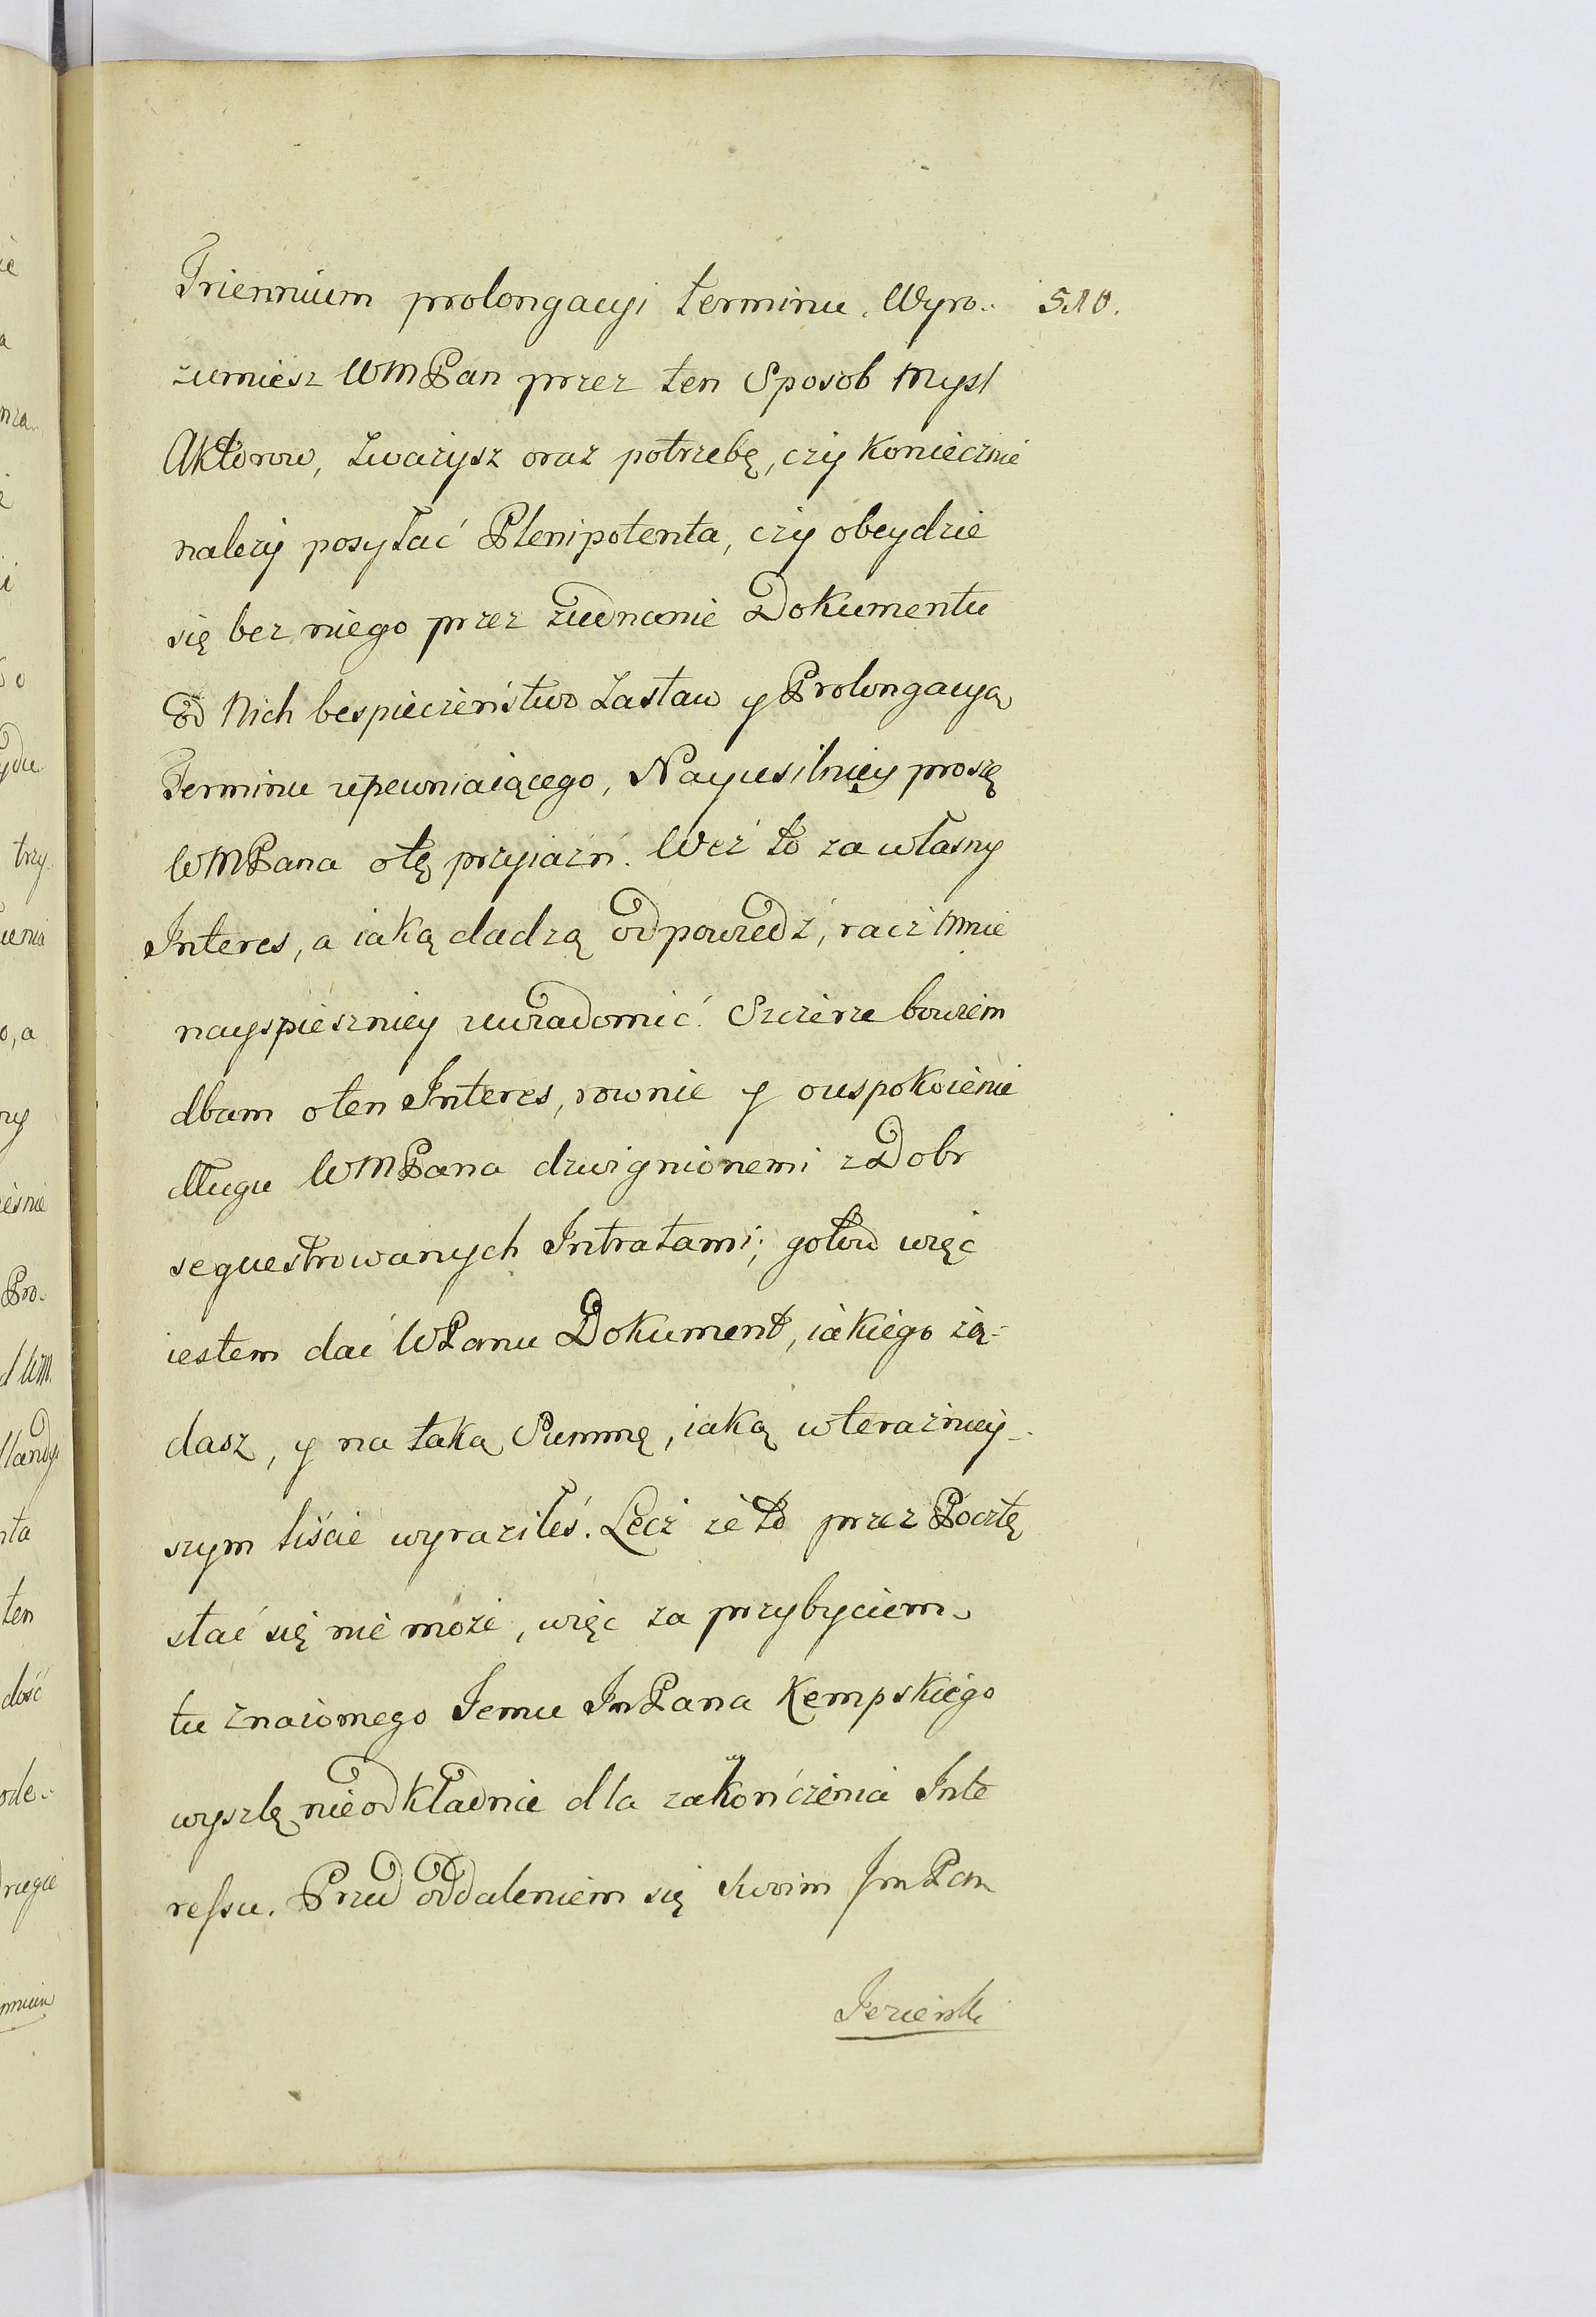 Triennium prolongacyi terminu. Wyro- 510.
zumiesz WMPan przez ten Sposob Mysl
Aktorow, Zwazysz oraz potrzebę, czy koniecznie
nalezy posyłać Plenipotenta, czy obeydzie
się bez niego przez ziednanie Dokumentu
Od Nich bespieczeństwo Zastaw y Prolongacyą
Terminu upewniaiącego, Nayusilniey proszę
WMPana otę przyiazń. Weź to za własny
Interes, a iaką dadzą odpowiedź, racz mnie
nayspieszniey uwiadomić. Szczerze bowiem
dbam oten Interes, rownie y ouspokoienie
długu WMPana dzwignionemi z Dobr
sequestrowanych Intratami; gotow więc
iestem dać WPanu Dokument, iakiego żą-
dasz, y na taką Summę, iaką wteraźniey-
szym liście wyraziłeś. Lecz że to przez Pocztę
stać się nie może, więc za przybyciem
tu znaiomego Jemu ImPana Kempskiego
wyszlę nieodkładnie dla zakończenia Inte
ressu. Przed oddaleniem się swoim ImPan
Jezierski
ie
a
mza.
i
ydu.
trzy.
ienia
o, a
ry
ieśnie
Pro.
d WM.
nta
ten
dość
ode-
drugie